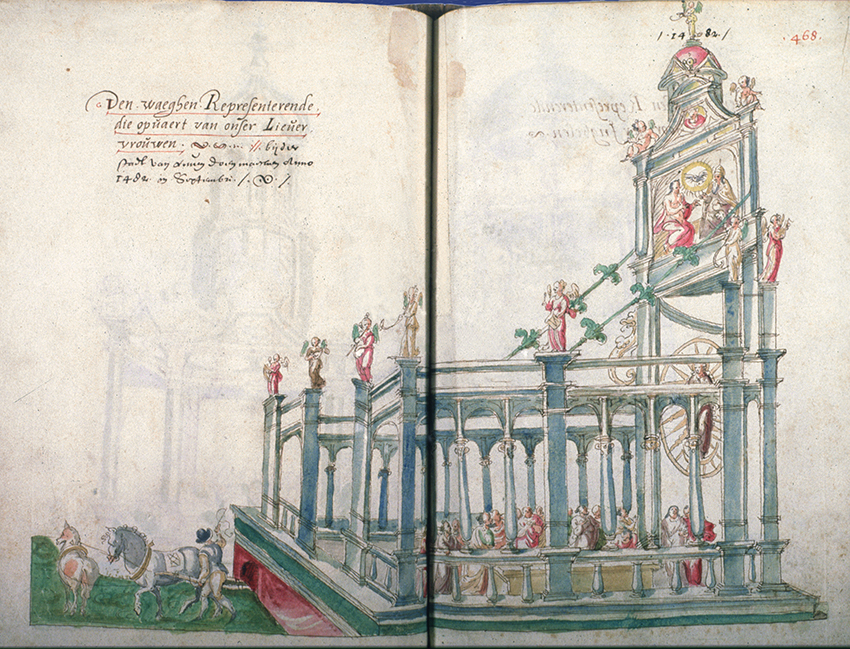 Den . waeghen . Representerende .
die opuaert van onser Lieuer
vrouwen . bij der
stadt van doen maecken Anno
1482 in Septembri . /
/ . 1482 /
. 468 .